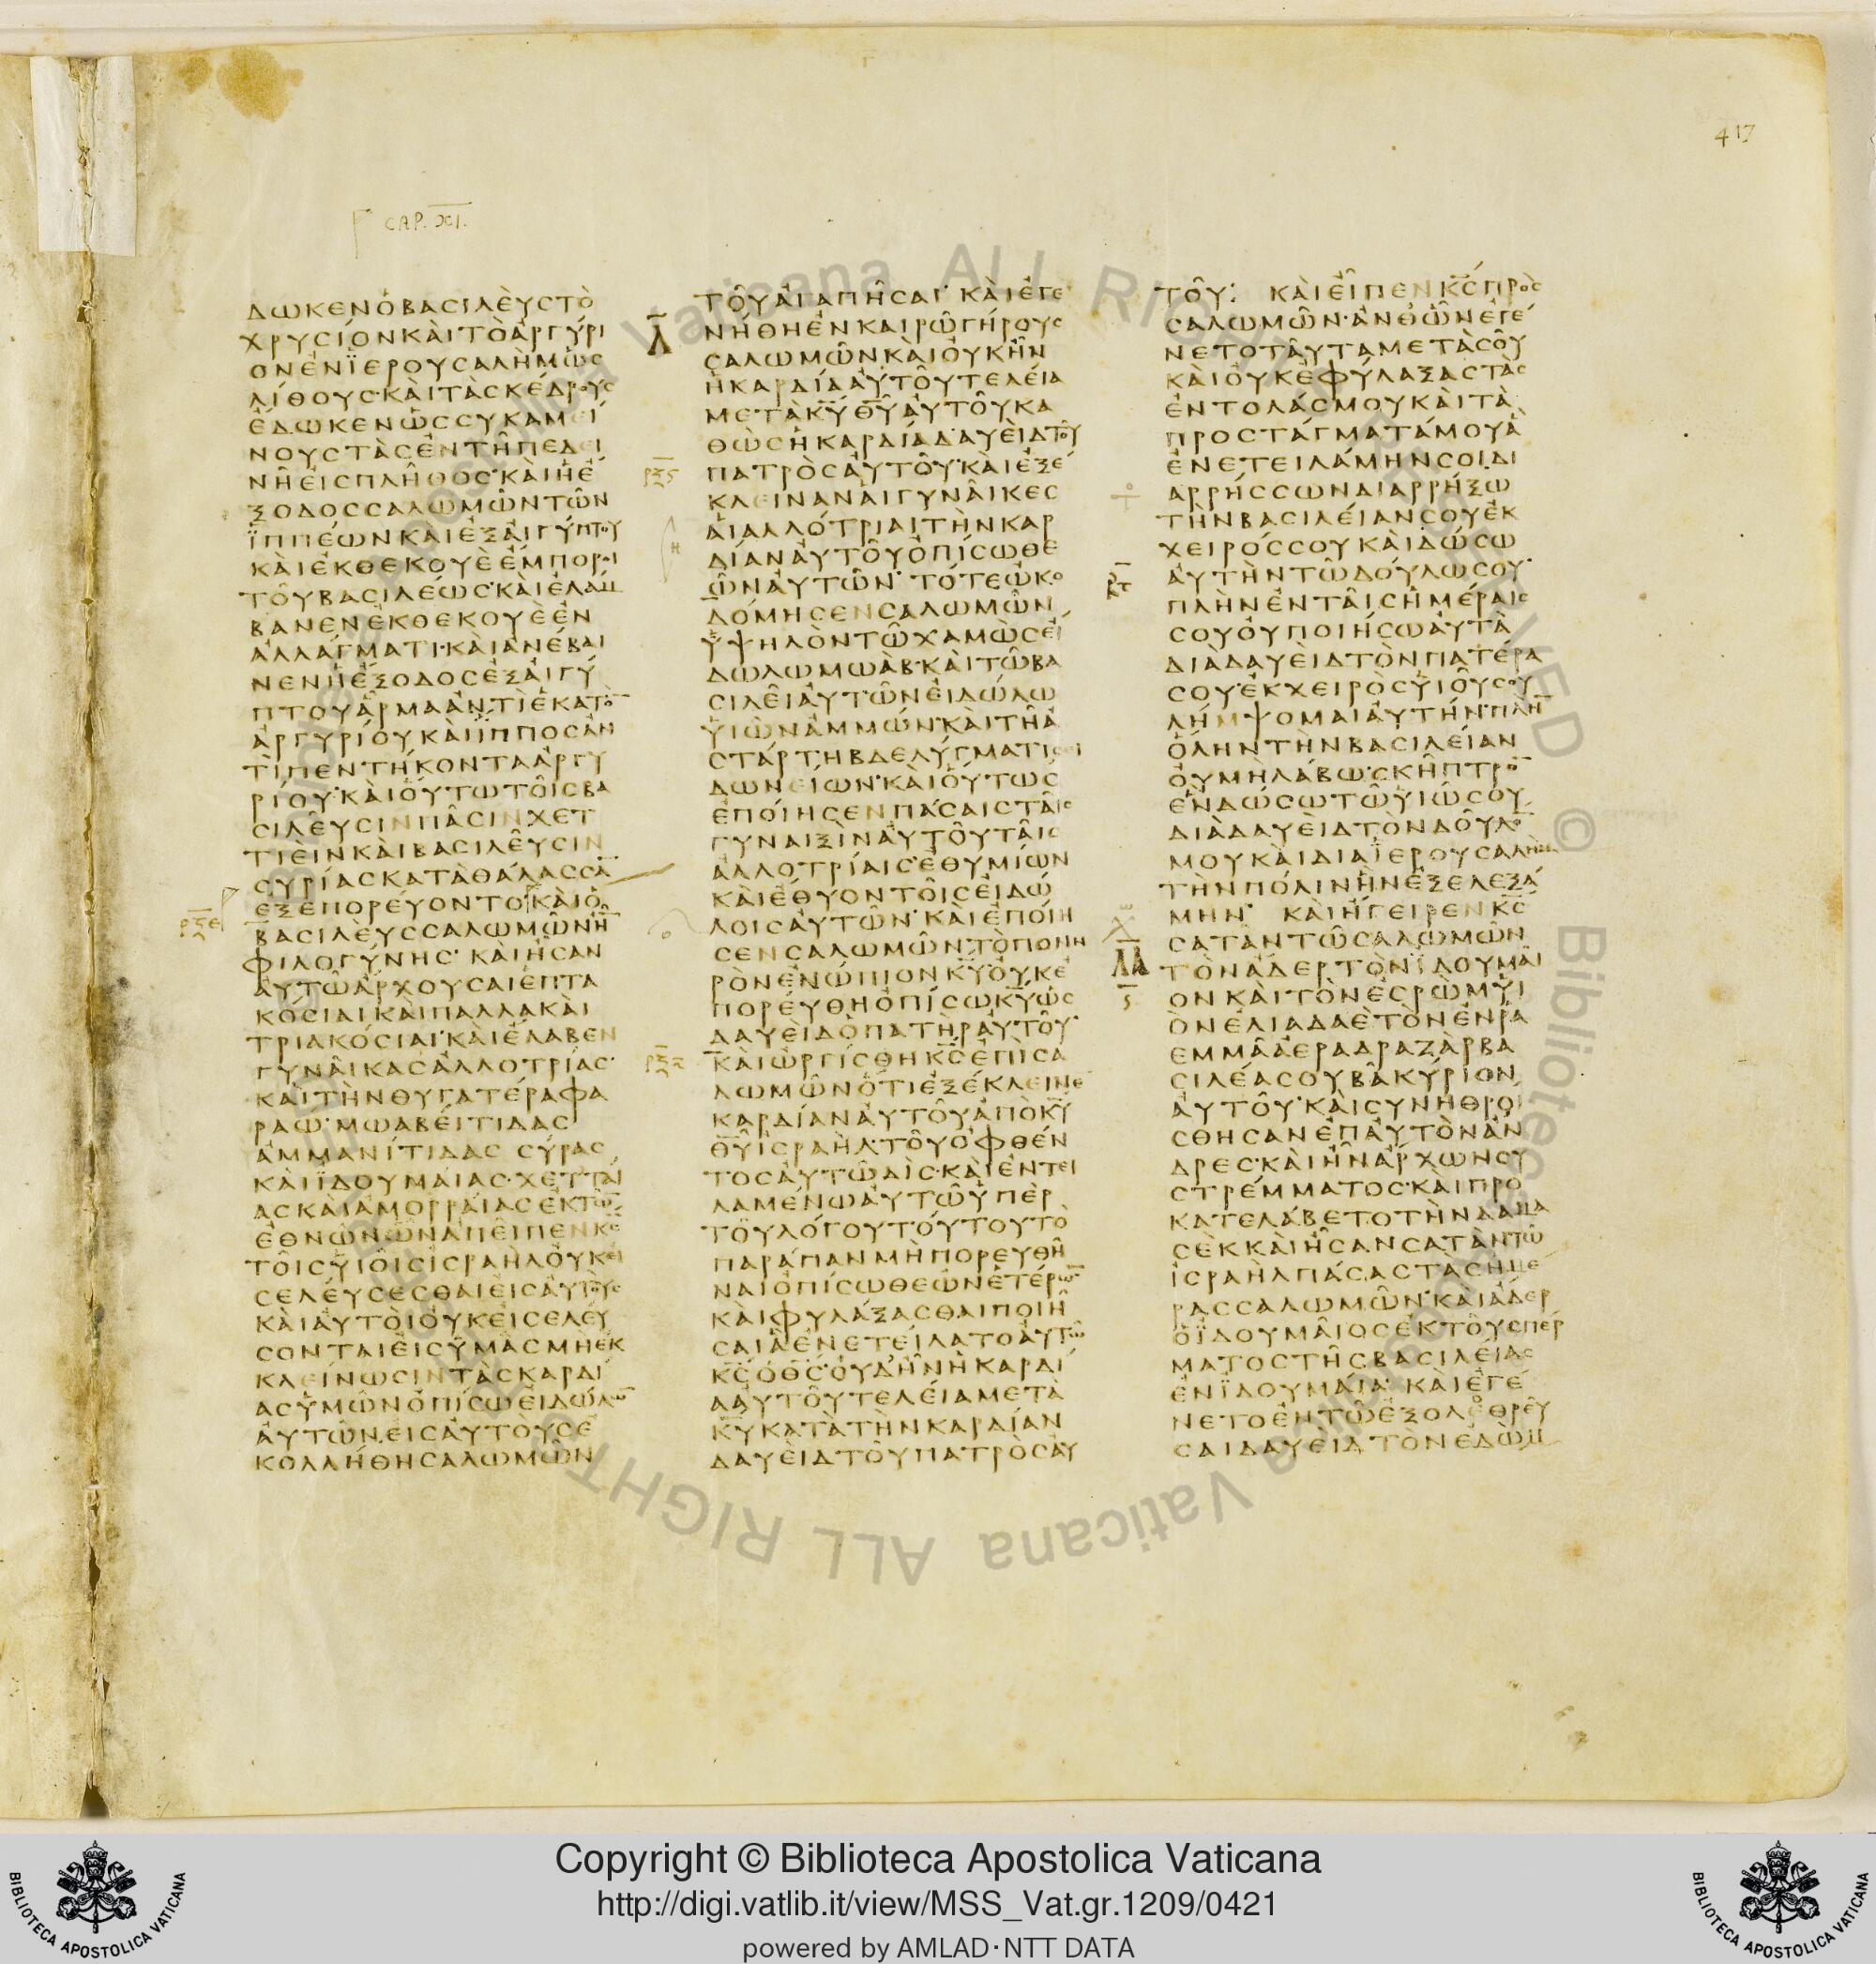 417
CAP. XI.
ΔΩΚΕΝΟΒΑCΙΛΕΥCΤΟ
ΧΡΥCΙΟΝΚΑΙΤΟΑΡΓΥΡΙ
ΟΝΕΝΪΕΡΟΥCΑΛΗΜΩC
ΛΙΘΟΥC·ΚΑΙΤΑCΚΕΔΡΟΥC
ΕΔΩΚΕΝΩCCΥΚΑΜΕΙ
ΝΟΥCΤΑCΕΝΤΗΠΕΔΕΙ
ΝΗΕΙCΠΛΗΘΟC·ΚΑΙΗΕ
ΞΟΔΟCCΑΛΩΜΩΝΤΩΝ
ΪΠΠΕΩΝΚΑΙΕΞΑΙΓΥΠΤΟΥ
ΚΑΙΕΚΘΕΚΟΥΕΕΜΠΟΡΟΙ
ΤΟΥΒΑCΙΛΕΩC·ΚΑΙΕΛΑΜ
ΒΑΝΕΝΕΚΘΕΚΟΥΕΕΝ
ΑΛΛΑΓΜΑΤΙ·ΚΑΙΑΝΕΒΑΙ
ΝΕΝΗΕΞΟΔΟCΕΞΑΙΓΥ
ΠΤΟΥΑΡΜΑΑΝΤΙΕΚΑΤΟ̅
ΑΡΓΥΡΙΟΥΚΑΙΪΠΠΟCΑΝ
ΤΙΠΕΝΤΗΚΟΝΤΑΑΡΓΥ
ΡΙΟΥ·ΚΑΙΟΥΤΩΤΟΙCΒΑ
CΙΛΕΥCΙΝΠΑCΙΝΧΕΤ
ΤΙΕΙΝΚΑΙΒΑCΙΛΕΥCΙΝ
CΥΡΙΑCΚΑΤΑΘΑΛΑCCΑ̅
ΕΞΕΠΟΡΕΥΟΝΤΟ·ΚΑΙΟ
ΒΑCΙΛΕΥCCΑΛΩΜΩΝΗ̅
ΦΙΛΟΓΥΝΗC· ΚΑΙΗCΑΝ
ΑΥΤΩΑΡΧΟΥCΑΙΕΠΤΑ
ΚΟCΙΑΙΚΑΙΠΑΛΛΑΚΑΙ
ΤΡΙΑΚΟCΙΑΙ·ΚΑΙΕΛΑΒΕΝ
ΓΥΝΑΙΚΑCΑΛΛΟΤΡΙΑC·
ΚΑΙΤΗΝΘΥΓΑΤΕΡΑΦΑ
ΡΑΩ·ΜΩΑΒΕΙΤΙΔΑC
ΑΜΜΑΝΙΤΙΔΑC CΥΡΑC
ΚΑΙΪΔΟΥΜΑΙΑC·ΧΕΤΤΑΙ
ΑCΚΑΙΑΜΟΡΡΑΙΑCΕΚΤΩ̅
ΕΘΝΩΝΩΝΑΠΕΙΠΕΝΚ̅C̅
ΤΟΙCΥΙΟΙCΙCΡΑΗΛΟΥΚΕΙ
CΕΛΕΥCΕCΘΑΙΕΙCΑΥΤΟΥC
ΚΑΙΑΥΤΟΙΟΥΚΕΙCΕΛΕΥ
CΟΝΤΑΙΕΙCΥΜΑCΜΗΕΚ
ΚΛΕΙΝΩCΙΝΤΑCΚΑΡΔΙ
ΑCΥΜΩΝΟΠΙCΩΕΙΔΩΛΩ̅
ΑΥΤΩΝΕΙCΑΥΤΟΥCΕ
ΚΟΛΛΗΘΗCΑΛΩΜΩΝ
ΤΟΥΑΓΑΠΗCΑΙ· ΚΑΙΕΓΕ
ΝΗΘΗΕΝΚΑΙΡΩΓΗΡΟΥC
CΑΛΩΜΩΝΚΑΙΟΥΚΗΝ
ΗΚΑΡΔΙΑΑΥΤΟΥΤΕΛΕΙΑ
ΜΕΤΑΚ̅Υ̅Θ̅Υ̅ΑΥΤΟΥΚΑ
ΘΩCΗΚΑΡΔΙΑΔΑΥΕΙΔΤΟΥ
ΠΑΤΡΟCΑΥΤΟΥ·ΚΑΙΕΞΕ
ΚΛΕΙΝΑΝΑΙΓΥΝΑΙΚΕC
ΑΙΑΛΛΟΤΡΙΑΙΤΗΝΚΑΡ
ΔΙΑΝΑΥΤΟΥΟΠΙCΩΘΕ
ΩΝΑΥΤΩΝ· ΤΟΤΕΩΚΟ
ΔΟΜΗCΕΝCΑΛΩΜΩΝ
ΥΨΗΛΟΝΤΩΧΑΜΩCΕΙ
ΔΩΛΩΜΩΑΒ·ΚΑΙΤΩΒΑ
CΙΛΕΙΑΥΤΩΝΕΙΔΩΛΩ
ΥΙΩΝΑΜΜΩΝ·ΚΑΙΤΗΑ
CΤΑΡΤΗΒΔΕΛΥΓΜΑΤΙCΕΙ
ΔΩΝΕΙΩΝ·ΚΑΙΟΥΤΩC
ΕΠΟΙΗCΕΝΠΑCΑΙCΤΑΙC
ΓΥΝΑΙΞΙΝΑΥΤΟΥΤΑΙC
ΑΛΛΟΤΡΙΑΙCΕΘΥΜΙΩΝ
ΚΑΙΕΘΥΟΝΤΟΙCΕΙΔΩ
ΛΟΙCΑΥΤΩΝ· ΚΑΙΕΠΟΙΗ
CΕΝCΑΛΩΜΩΝΤΟΠΟΝΗ
ΡΟΝΕΝΩΠΙΟΝΚ̅Υ̅ΟΥΚΕ
ΠΟΡΕΥΘΗΟΠΙCΩΚ̅Υ̅ΩC
ΔΑΥΕΙΔΟΠΑΤΗΡΑΥΤΟΥ·
ΚΑΙΩΡΓΙCΘΗΚ̅C̅ΕΠΙCΑ
ΛΩΜΩΝΟΤΙΕΞΕΚΛΕΙΝΕ
ΚΑΡΔΙΑΝΑΥΤΟΥΑΠΟΚ̅Υ̅
Θ̅Υ̅ΙCΡΑΗΛ·ΤΟΥΟΦΘΕΝ
ΤΟCΑΥΤΩΔΙC·ΚΑΙΕΝΤΕΙ
ΛΑΜΕΝΩΑΥΤΩΥΠΕΡ
ΤΟΥΛΟΓΟΥΤΟΥΤΟΥΤΟ
ΠΑΡΑΠΑΝΜΗΠΟΡΕΥΘΗ
ΝΑΙΟΠΙCΩΘΕΩΝΕΤΕΡΩ̅
ΚΑΙΦΥΛΑΞΑCΘΑΙΠΟΙΗ
CΑΙΑΕΝΕΤΕΙΛΑΤΟΑΥΤΩ
Κ̅C̅ΟΘ̅C̅·ΟΥΔΗΝΗΚΑΡΔΙ
ΑΑΥΤΟΥΤΕΛΕΙΑΜΕΤΑ
Κ̅Υ̅ΚΑΤΑΤΗΝΚΑΡΔΙΑΝ
ΔΑΥΕΙΔΤΟΥΠΑΤΡΟCΑΥ
ΤΟΥ: ΚΑΙΕΙΠΕΝΚ̅C̅ΠΡΟC
CΑΛΩΜΩΝ·ΑΝΘΩΝΕΓΕ
ΝΕΤΟΤΑΥΤΑΜΕΤΑCΟΥ
ΚΑΙΟΥΚΕΦΥΛΑΞΑCΤΑC
ΕΝΤΟΛΑCΜΟΥΚΑΙΤΑ
ΠΡΟCΤΑΓΜΑΤΑΜΟΥΑ
ΕΝΕΤΕΙΛΑΜΗΝCΟΙΔΙ
ΑΡΡΗCCΩΝΔΙΑΡΡΗΞΩ
ΤΗΝΒΑCΙΛΕΙΑΝCΟΥΕΚ
ΧΕΙΡΟCCΟΥΚΑΙΔΩCΩ
ΑΥΤΗΝΤΩΔΟΥΛΩCΟΥ·
ΠΛΗΝΕΝΤΑΙCΗΜΕΡΑΙC
CΟΥΟΥΠΟΙΗCΩΑΥΤΑ
ΔΙΑΔΑΥΕΙΔΤΟΝΠΑΤΕΡΑ
CΟΥ·ΕΚΧΕΙΡΟCΥΙΟΥCΟΥ
ΛΗΜΨΟΜΑΙΑΥΤΗΝ·ΠΛΗ̅
ΟΛΗΝΤΗΝΒΑCΙΛΕΙΑΝ
ΟΥΜΗΛΑΒΩ·CΚΗΠΤΡΟ̅
ΕΝΔΩCΩΤΩΥΙΩCΟΥ
ΔΙΑΔΑΥΕΙΔΤΟΝΔΟΥΛΟ̅
ΜΟΥΚΑΙΔΙΑΪΕΡΟΥCΑΛΗΜ
ΤΗΝΠΟΛΙΝΗΝΕΞΕΛΕΞΑ
ΜΗΝ· ΚΑΙΗΓΕΙΡΕΝΚ̅C̅
CΑΤΑΝΤΩCΑΛΩΜΩΝ
ΤΟΝΑΔΕΡΤΟΝΪΔΟΥΜΑΙ
ΟΝΚΑΙΤΟΝΕCΡΩΜΥΙ
ΟΝΕΛΙΑΔΑΕΤΟΝΕΝΡΑ
ΕΜΜΑΑΕΡΑΔΡΑΖΑΡΒΑ
CΙΛΕΑCΟΥΒΑΚΥΡΙΟΝ
ΑΥΤΟΥ·ΚΑΙCΥΝΗΘΡΟΙ
CΘΗCΑΝΕΠΑΥΤΟΝΑΝ
ΔΡΕC·ΚΑΙΗΝΑΡΧΩΝCΥ
CΤΡΕΜΜΑΤΟC·ΚΑΙΠΡΟ
ΚΑΤΕΛΑΒΕΤΟΤΗΝΔΑΜΑ
CΕΚΚΑΙΗCΑΝCΑΤΑΝΤΩ
ΙCΡΑΗΛΠΑCΑCΤΑCΗΜΕ
ΡΑCCΑΛΩΜΩΝ·ΚΑΙΑΔΕΡ
ΟΪΔΟΥΜΑΙΟCΕΚΤΟΥCΠΕΡ
ΜΑΤΟCΤΗCΒΑCΙΛΕΙΑC
ΕΝΪΔΟΥΜΑΙΑ· ΚΑΙΕΓΕ
ΝΕΤΟΕΝΤΩΕΞΟΛΕΘΡΕΥ
CΑΙΔΑΥΕΙΔΤΟΝΕΔΩΜ
Copyright © Biblioteca Apostolica Vaticana
http://digi.vatlib.it/view/MSS_Vat.gr.1209/0421
powered by AMLAD·NTT DATA
BIBLIOTECA APOSTOLICA VATICANA
BIBLIOTECA APOSTOLICA VATICANA